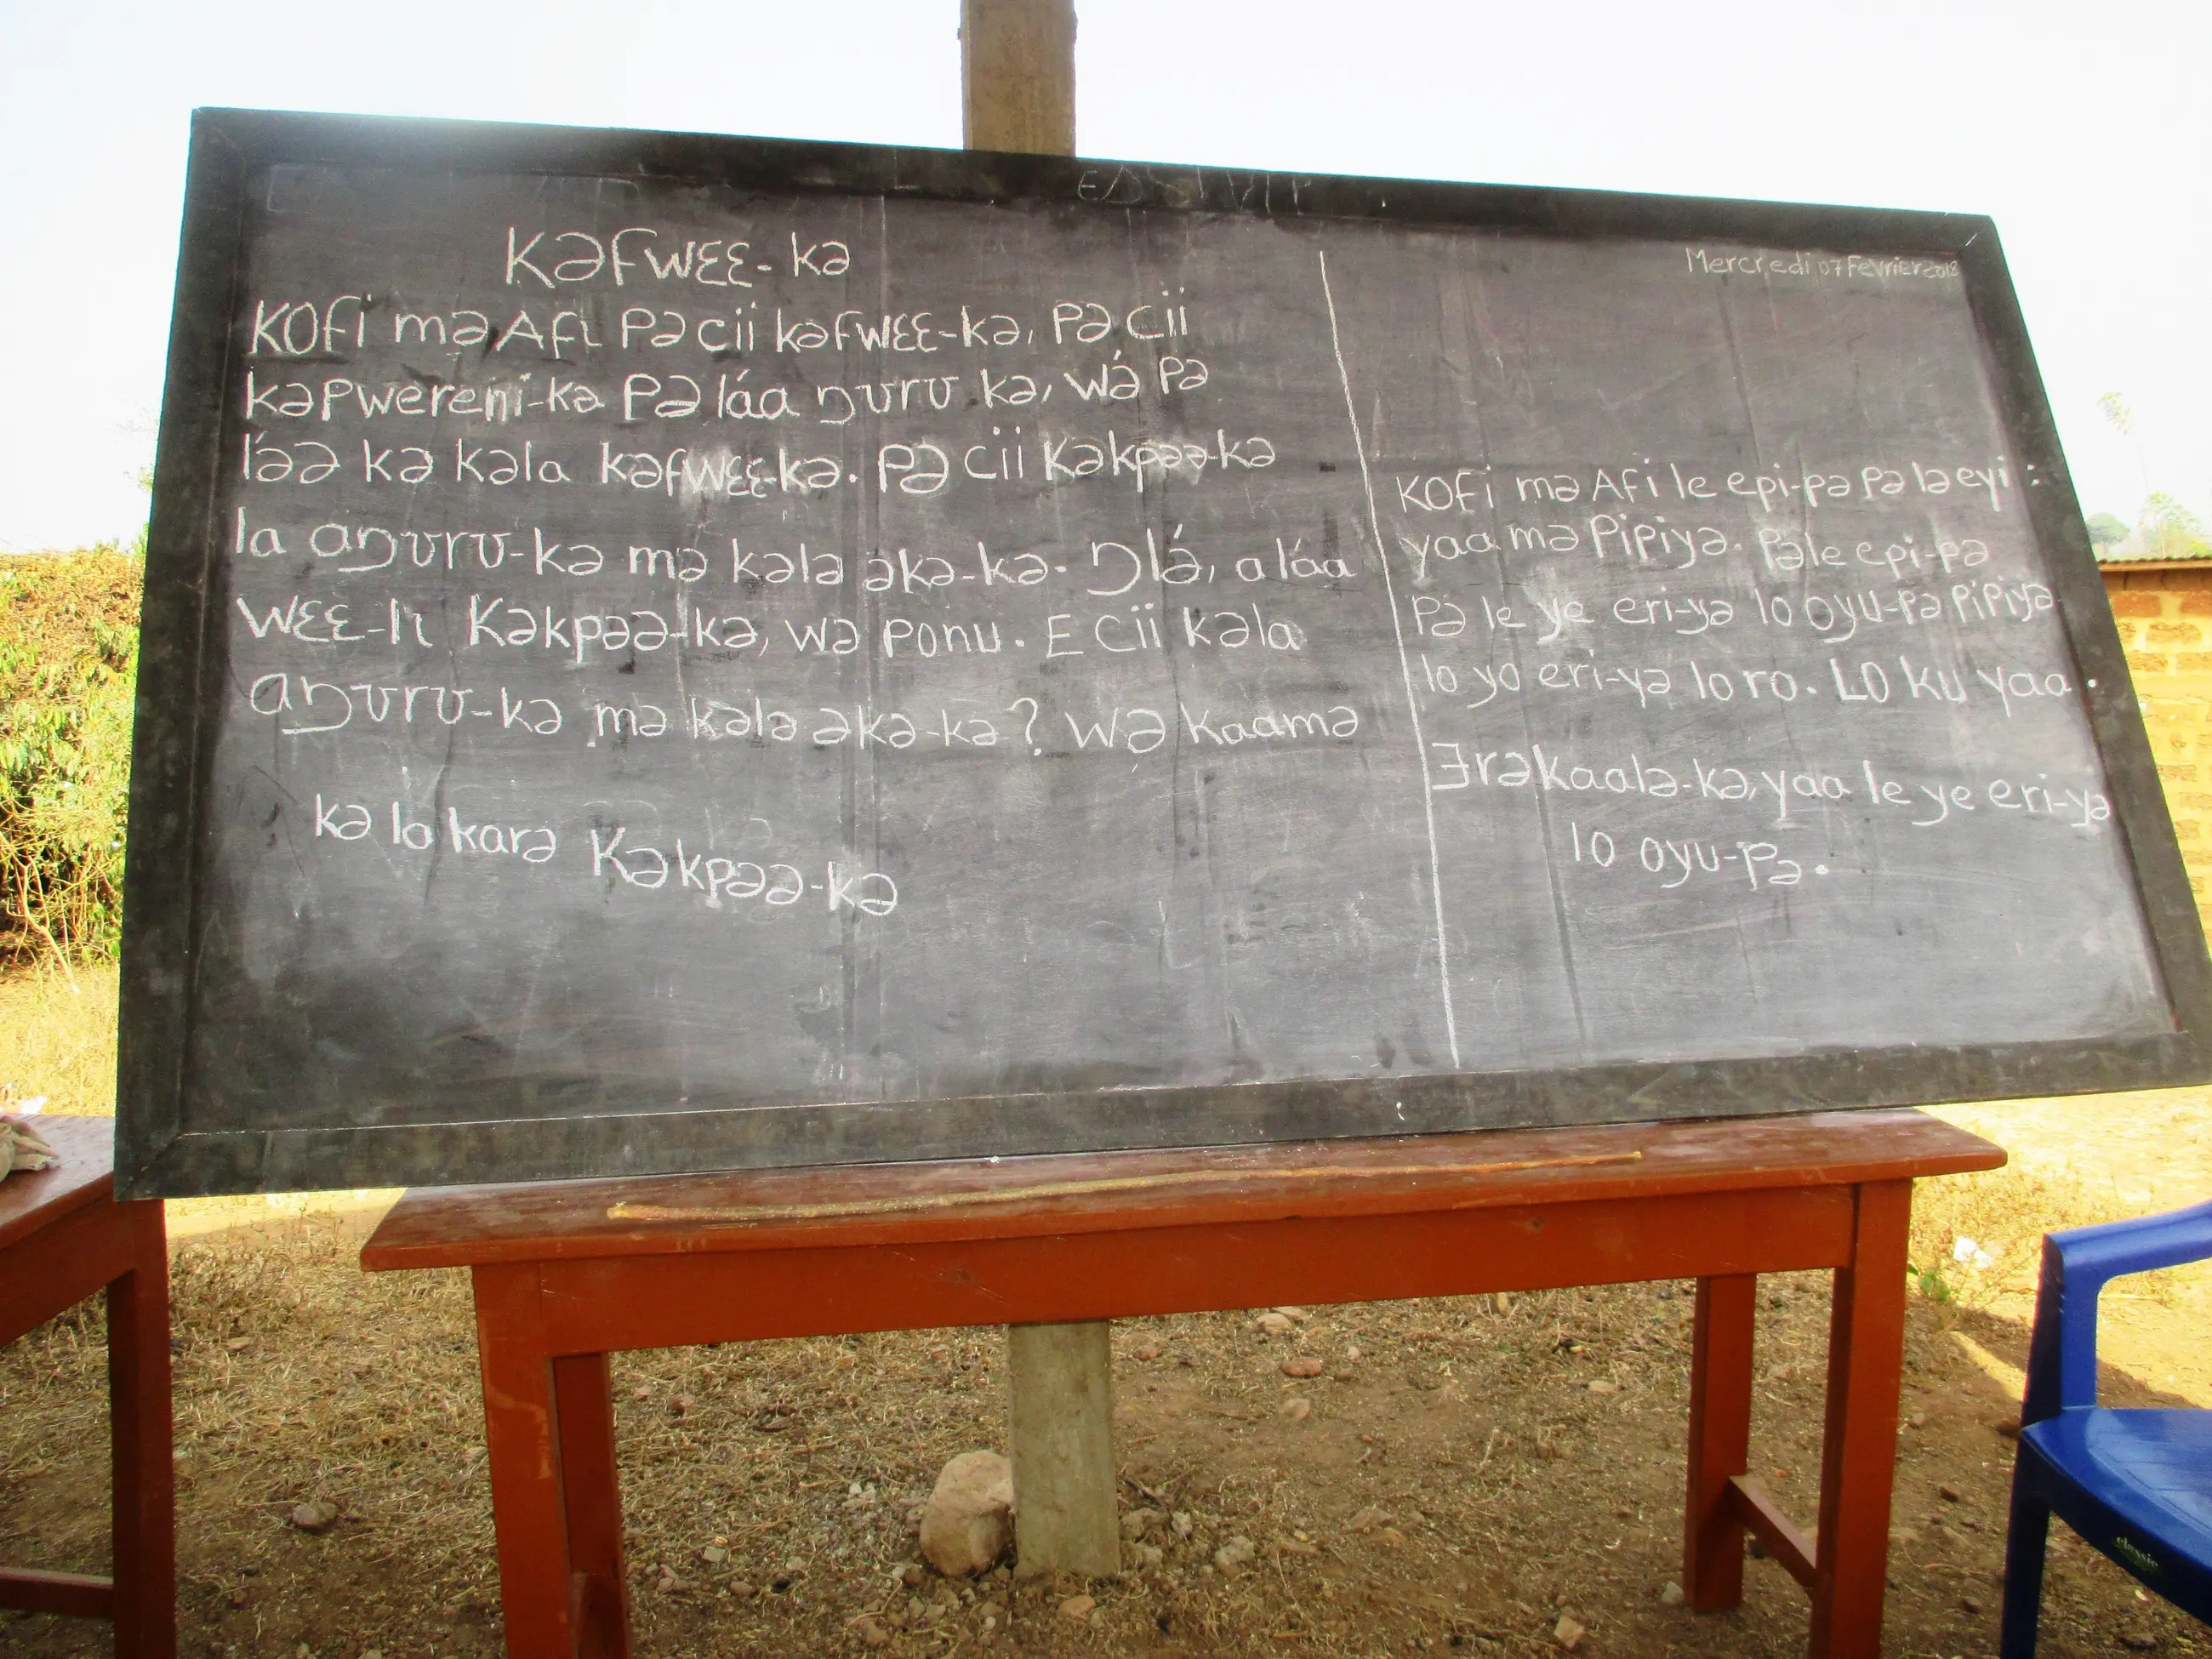 Kəfwɛɛ-kə
Kofi mə Afi Pə cii kəfwɛɛ-kə, Pə cii
kəpwereŋi-kə Pə láa ŋʊrʊ kə, wə́ Pə
lə́ə kə kəla kəfwɛɛ-kə. Pə cii Kəkpəə-kə
la aŋʊrʊ-kə mə kələ əkə-kə. Ŋlə́, a láa
wɛɛ-lɩ Kəkpəə-kə, wə ponu. E cii kəla
aŋʊrʊ-kə mə kələ əkə-kə? Wə kaamə
kə lo karə Kəkpəə-kə
Mercredi 07 Fevrier 2018
Kofi mə Afi le epi-pə Pə lə eyi :
yaa mə Pipiyə. Pəle epi-pə
Pə le ye eri-yə lo oyu-pə Pipiyə
lo yo eri-yə lo ro. Lo ku yaa.
Ǝrəkaalə-kə, yaa le ye eri-yə
lo oyu-Pə.
classic